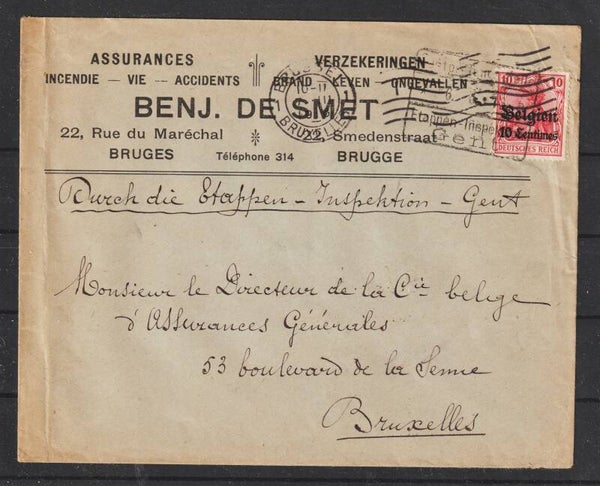 ASSURANCES VERZEKERINGEN
INCENDIE — VIE — ACCIDENTS BRAND — LEVEN — ONGEVALLEN
BENJ. DE SMET
22, Rue du Maréchal 22, Smedenstraat
BRUGES Téléphone 314 BRUGGE
BRUSSEL
BRUXELLES
Etappen-Inspe
Gent
10
Belgien
10 Centimes
DEUTSCHES REICH
Durch die Etappen - Inspektion - Gent
Monsieur le Directeur de la Cie belge
d'Assurances Générales
53 boulevard de la Senne
Bruxelles